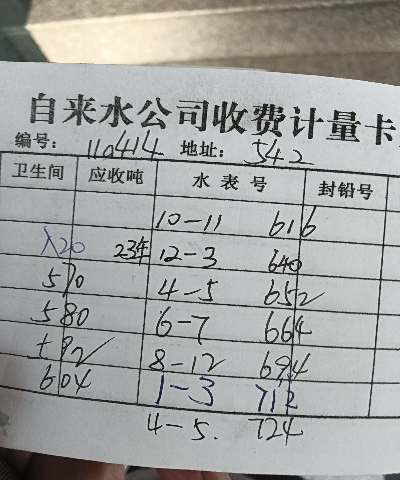 自来水公司收费计量卡
编号: 110414 地址: 542
卫生间 应收吨 水表号 封铅号
10-11 616
23年 12-3 640
570 4-5 652
580 6-7 664
8-12 694
604 1-3 712
4-5. 724